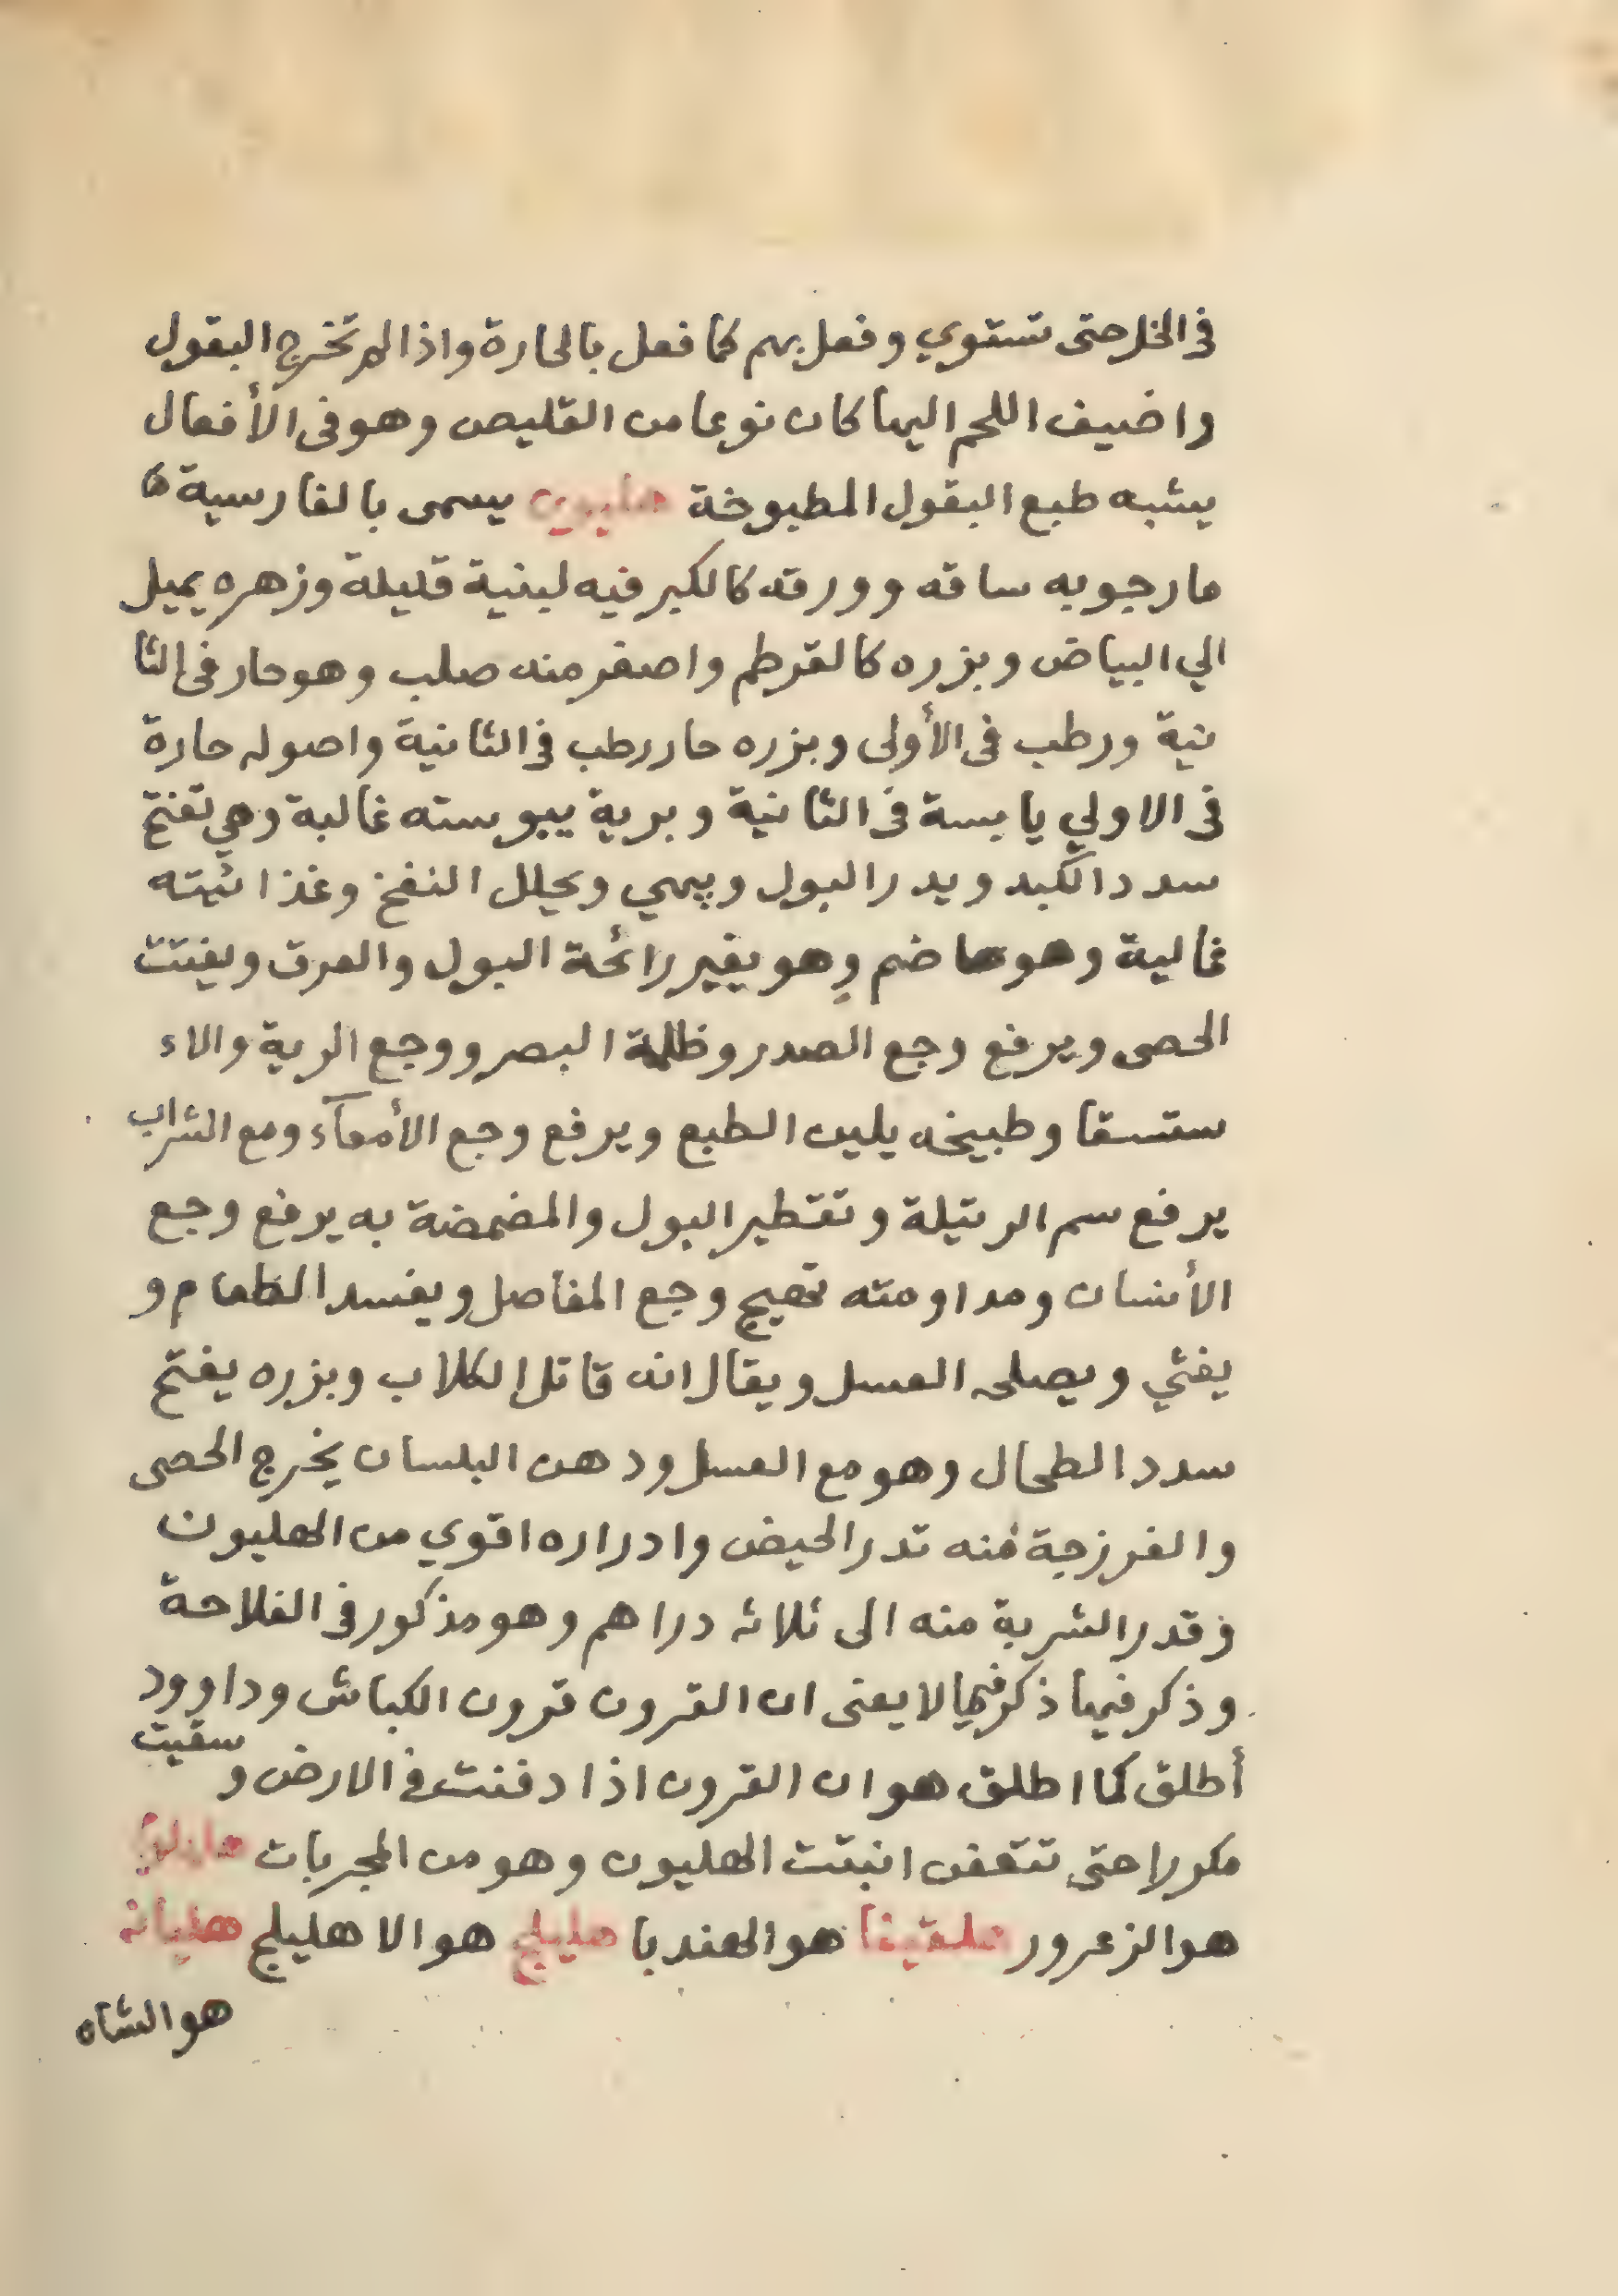 في الخل حتى تستوي وفعل بهم كما فعل بالحارة واذا لم تخرج البقول
واضيف اللحم اليها كان نوعا من القليص وهو فى الأفعال
يشبه طبع البقول المطبوخة هليون يسمى بالفارسية
مارجوبه ساقه وورقه كالكبر فيه لبنية قليلة وزهره يميل
الي البياض وبزره كالقرطم واصغر منه صلب وهو حار فى الثا
نية ورطب فى الأولى وبزره حار رطب في الثانية واصوله حارة
فى الاولي يابسة فى الثانية وبرية يبوسته غالبة وهي تفتح
سدد الكبد ويدر البول ويهي ويحلل النفخ وغذائيته
غالبة وهو هاضم وهو يغير رائحة البول والعرق ويفتت
الحصى ويرفع وجع الصدر وظلمة البصر ووجع الرية والاء
ستسقا وطبيخه يلين الطبع ويرفع وجع الأمعآء ومع الشراب
يرفع سم الرتيلة وتقطير البول والمضمضة به يرفع وجع
الأسنان ومداومته تهيج وجع المفاصل ويفسد الطعام و
يغثي ويصلحه العسل ويقال انه قاتل الكلاب وبزره يفتح
سدد الطحال وهو مع العسل ودهن البلسان يخرج الحصى
والفرزجة منه تدر الحيض وادراره اقوي من الهليون
وقدر الشربة منه الى ثلاثه دراهم وهو مذكور في الفلاحة
وذكر فيها ذكر فيما لا يعنى ان القرون قرون الكباش وداوود
أطلق كما اطلق هو ان القرون اذا دفنت في الارض و سقيت
مكررا حتى تتعفن انبتت الهليون وهو من المجربات
هو الزعرور هلقينا هو الهندبا هليلج هو الاهليلج هليانه
هو الشاه